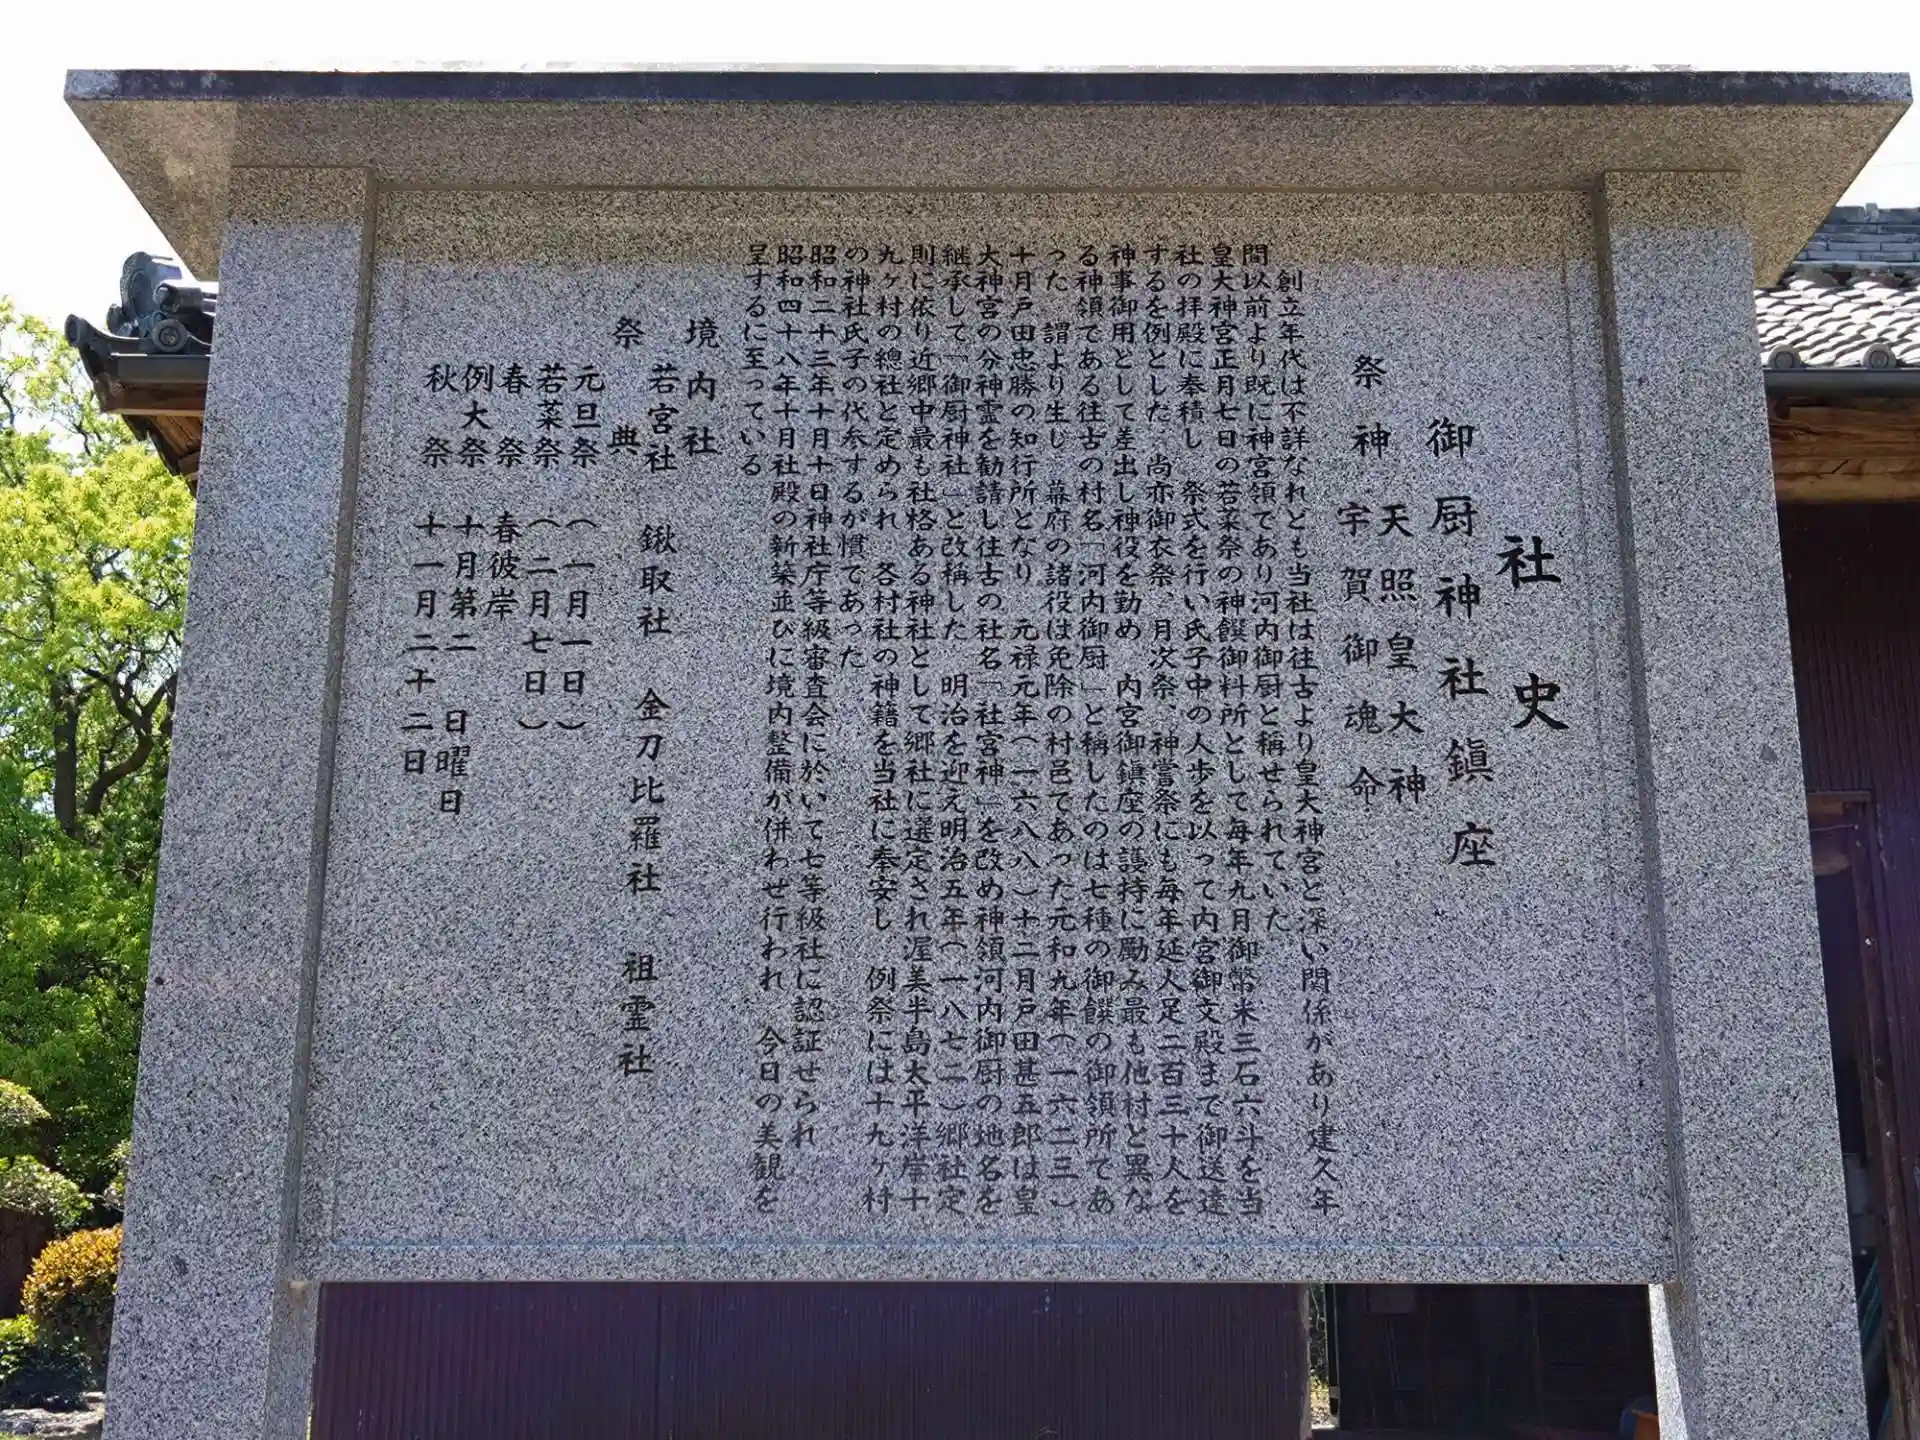 社史
御厨神社鎮座
祭神 天照皇大神
宇賀御魂命
創立年代は不詳なれども当社は往古より皇大神宮と深い関係があり建久年
間以前より既に神宮領であり河内御厨と称せられていた
皇大神宮正月七日の若菜祭の神饌御料所として毎年九月御幣米三石六斗を当
社の拝殿に奉積し 祭式を行い氏子中の人歩を以って内宮御文殿まで御送達
するを例とした 尚亦御衣祭、月次祭、神嘗祭にも毎年延人足二百三十人を
神事御用として差出し神役を勤め 内宮御鎮座の護持に励み最も他村と異な
る神領である往古の村名「河内御厨」と称したのは七種の御饌の御領所であ
った 謂より生じ 幕府の諸役は免除の村邑であった元和九年(一六二三)
十月戸田忠勝の知行所となり 元禄元年(一六八八)十二月戸田甚五郎は皇
大神宮の分神霊を勧請し往古の社名「社宮神」を改め神領河内御厨の地名を
継承して「御厨神社」と改称した 明治を迎え明治五年(一八七二)郷社定
則に依り近郷中最も社格ある神社として郷社に選定され渥美半島太平洋岸十
九ヶ村の總社と定められ 各村社の神籍を当社に奉安し 例祭には十九ヶ村
の神社氏子の代参するが慣であった
昭和二十三年十月十日神社庁等級審査会に於いて七等級社に認証せられ
昭和四十八年十月社殿の新築並びに境内整備が併わせ行われ 今日の美観を
呈するに至っている
境内社
若宮社 鍬取社 金刀比羅社 祖霊社
祭典
元旦祭 (一月一日)
若菜祭 (二月七日)
春祭 春彼岸
例大祭 十月第二 日曜日
秋祭 十一月二十二日